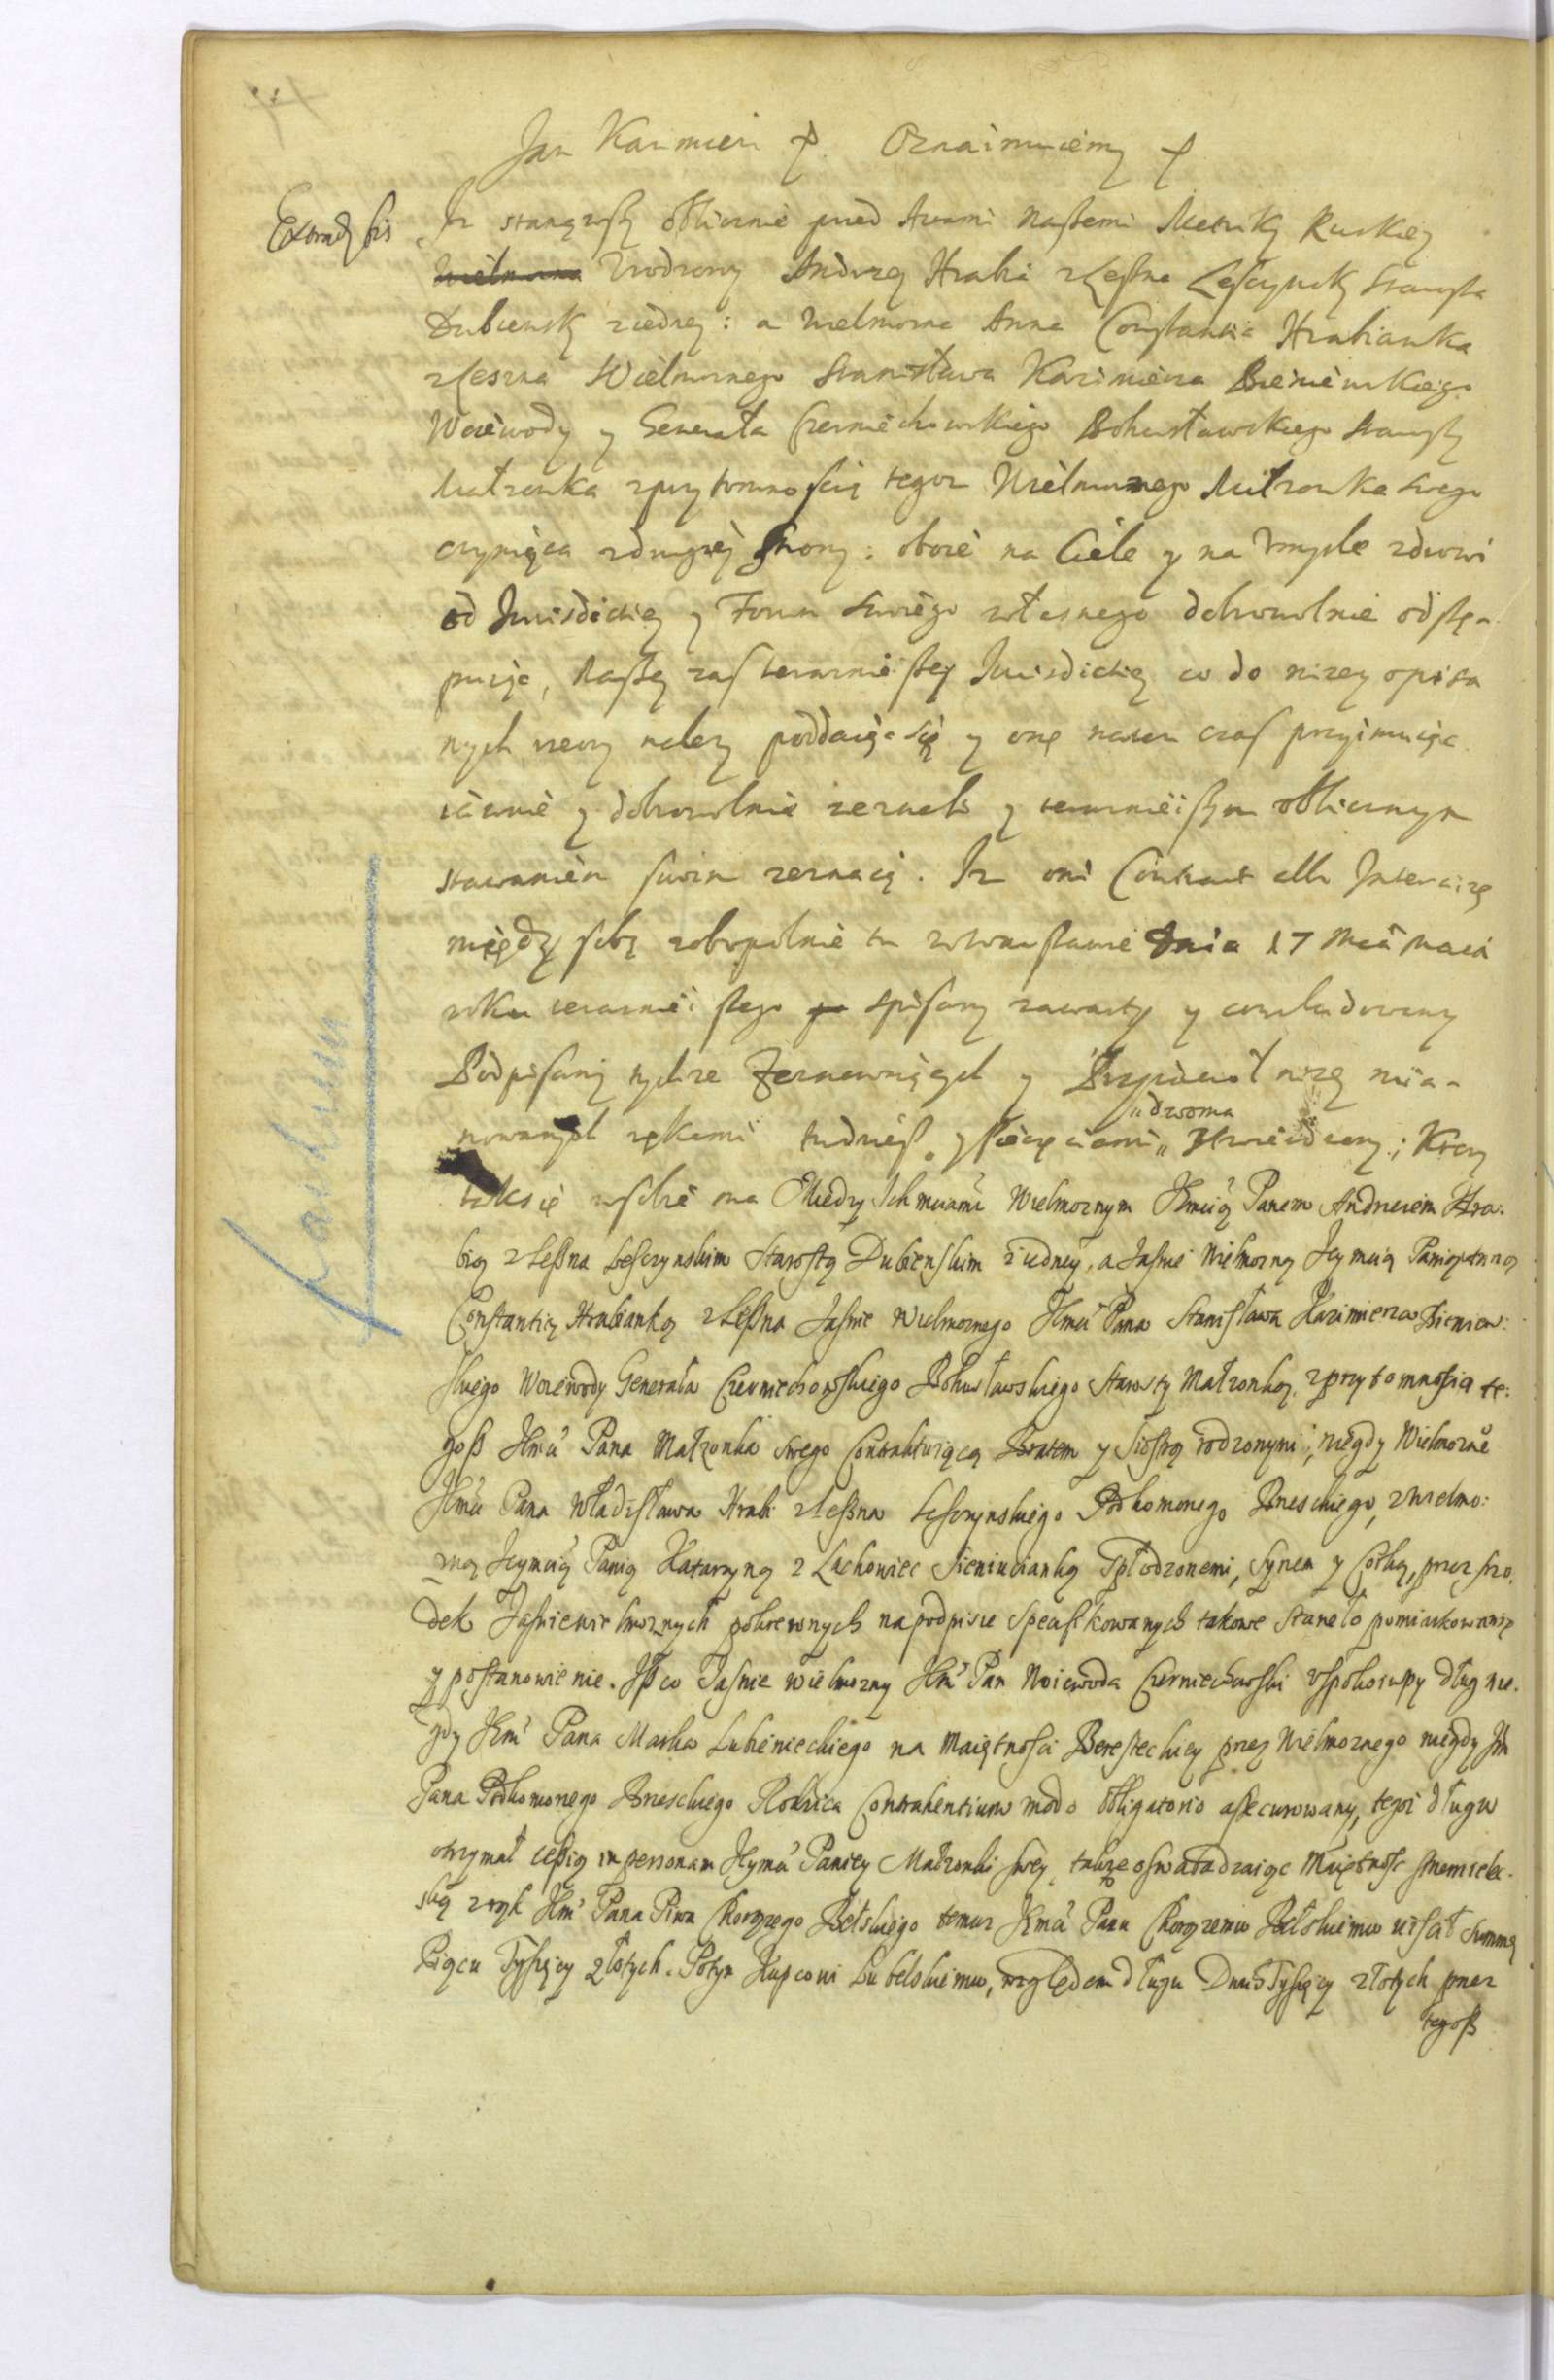 Jan Kazimierz etc. Oznaimuiemy etc.
Extrad. bis
Iz stanąwszy oblicznie przed Actami Naszemi Metryky Ruskiey
Wielmozna Urodzony Andrzey Hrabia zLeszna Lesczynsky Starosta
Dubiensky ziedney: a Wielmozna Anna Constantia Hrabianka
zLeszna Wielmoznego Stanisława Kazimierza Bieniewskiego
Woiewody y Generała Czerniechowskiego Bohusławskiego Starosty
Małzonka zprzytomnoscią tegoz Wielmoznego Małzonka swego
czyniąca zdrugiey strony: oboie na Ciele y na Umysle zdrowi
od Jurisdictiey y Forum swoiego własnego dobrowolnie odstę-
puiąc, Naszey zas teraznieyszey Jurisdictiey co do nizey opisa
nych rzeczy nalezy poddaiąc się y onę naten czas przyimuiąc
iawnie y dobrowolnie zeznali y teraznieiszym oblicznym
stawaniem swoim zeznaią. Iz oni Contract albo Intercizę
między sobą zobopolnie tu w Warszawie Dnia 17 Mca Maia
roku teraznieiszego spisany zawarty y concludowany
Podpisany tychze Zeznawaiących y Przyiacioł nizey mia-
nowanych rękami tudziesz y pieczęciami „ Stwierdzony; Ktory
„ dwoma
taksię wsobie ma Miedzy Ichmciami Wielmoznym Jmcią Panem Andrzeiem Hra:
bią zLeszna Lesczynskim Starostą Dubienskim ziedney, a Jasnie Wielmozną Jeymcią Panią Anną
Constantią Hrabianką zLeszna Jasnie Wielmoznego Jmci Pana Stanisława Kazimierza Bieniew:
skiego Woiewody Generała Czerniechowskiego Bohusławskiego Starosty Małzonką, zprzytomnoscią te:
gosz Jmci Pana Małzonka swego Contraktuiącą Bratem y Siostrą rodzonymi, niegdy Wielmozne
Jmci Pana Władisława Hrabi zLeszna Lesczynskiego Podkomorzego Brzeskiego, z Wielmo:
zną Jeymcią Panią Katarzyną z Lachowiec Sieniucianką Spłodzonemi, Synem y Corką, przez szro
dek Jasniewielmoznych pokrewnych napodpisie specifikowanych takowe staneło pomiarkowanie
y postanowienie. Isz co Jasnie wielmozny Jm Pan Woiewoda Czerniechowski uspokoiwszy dług nie.
gdy Jm Pana Marka Lubienieckiego na Maiętnosci Beresteckiey przez Wielmoznego niegdy Jm
Pana Podkomorzego Brzeskiego Rodzica Contrahentium modo obligatorio assecurowany, tegoz długu
otrzymał cessią in personam Jeymci Paniey Małzonki swey, takze oswabadzaiąc Maiętnosc
ską zrąk Jm Pana Piwa Chorązego Bełskiego temuz Jmci Panu Chorązemu Bełskiemu uiscił Summę
Pięciu Tysięcy złotych. Potym Kupcowi Lubelskiemu, względem długu Dwuch Tysięcy złotych przez
tegosz